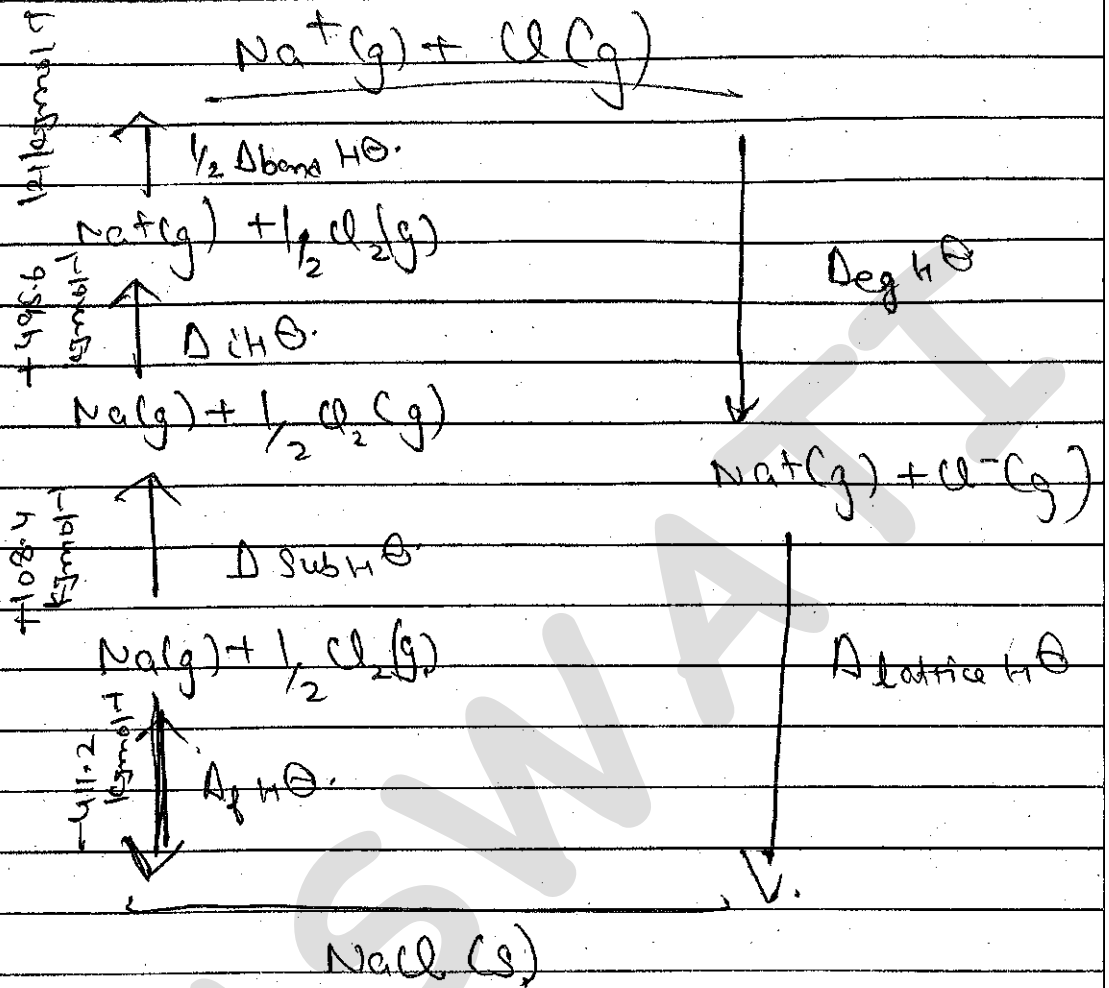 Na⁺(g) + Cl(g)
121 kJmol⁻¹
½ Δbond HΘ.
Na⁺(g) + ½ Cl₂(g)
ΔegHΘ
+495.6 kJmol⁻¹
ΔiHΘ.
Na(g) + ½ Cl₂(g)
Na⁺(g) + Cl⁻(g)
+108.4 kJmol⁻¹
Δ SubHΘ.
Na(g) + ½ Cl₂(g)
Δ lattice HΘ
-411.2 kJmol⁻¹
ΔfHΘ.
NaCl (s)
SWATI